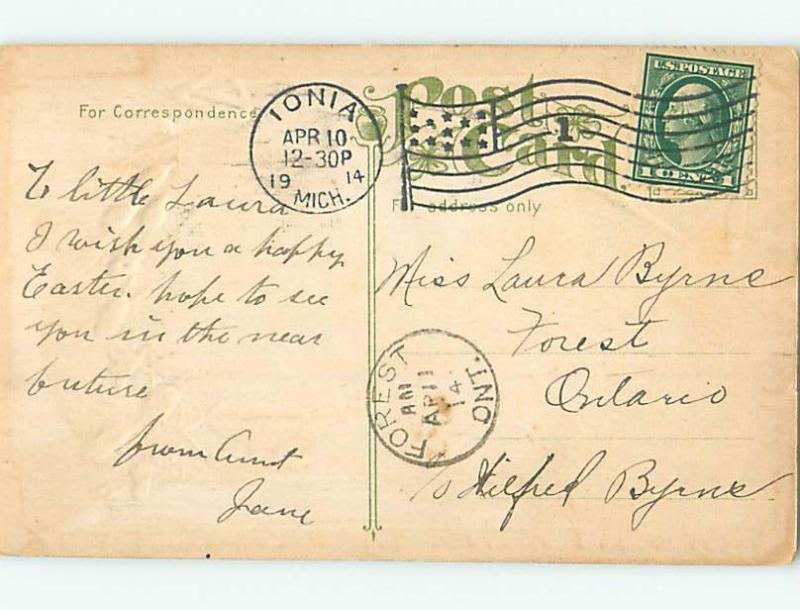 Post Card
For Correspondence
IONIA
APR 10
12-30P
19 14
MICH.
1
U.S. POSTAGE
1 CENT 1
For address only
To little Laura
I wish you a happy
Easter. hope to see
you in the near
future
from Aunt
Jane
Miss Laura Byrne
Forest
Ontario
c/o Wilfred Byrne
FOREST
AM
AP 11
14
ONT.